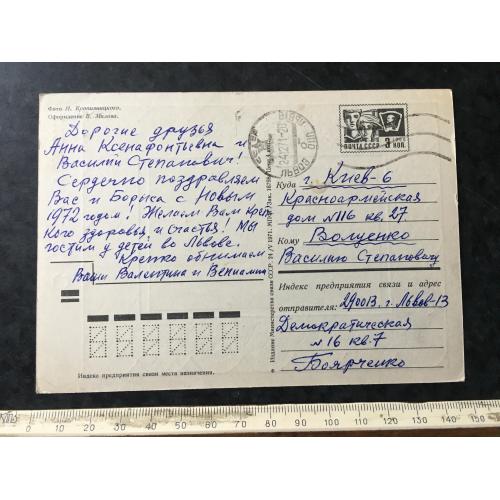 Фото Н. Кропивницкого.
Оформление В. Милова.
Дорогие друзья
Анна Ксенафонтьевна и
Василий Степанович!
Сердечно поздравляем
Вас и Бориса с Новым
1972 годом! Желаем Вам креп
кого здоровья и счастья! Мы
гостили у детей во Львове.
Крепко обнимаем
Ваши Валентина и Вениамин
Индекс предприятия связи места назначения.
Издание Министерства связи СССР. 24/V 1971.
ЛЬВОВ
ПОЧТА СССР 3 КОП.
Куда г. Киев-6
Красноармейская
дом №116 кв. 27
Кому Волценко
Василию Степановичу
Индекс предприятия связи и адрес
отправителя: 290013. г. Львов-13
Демократическая
№16 кв. 7
Боярченко
0 10 20 30 40 50 60 70 80 90 100 110 120 130 140 150